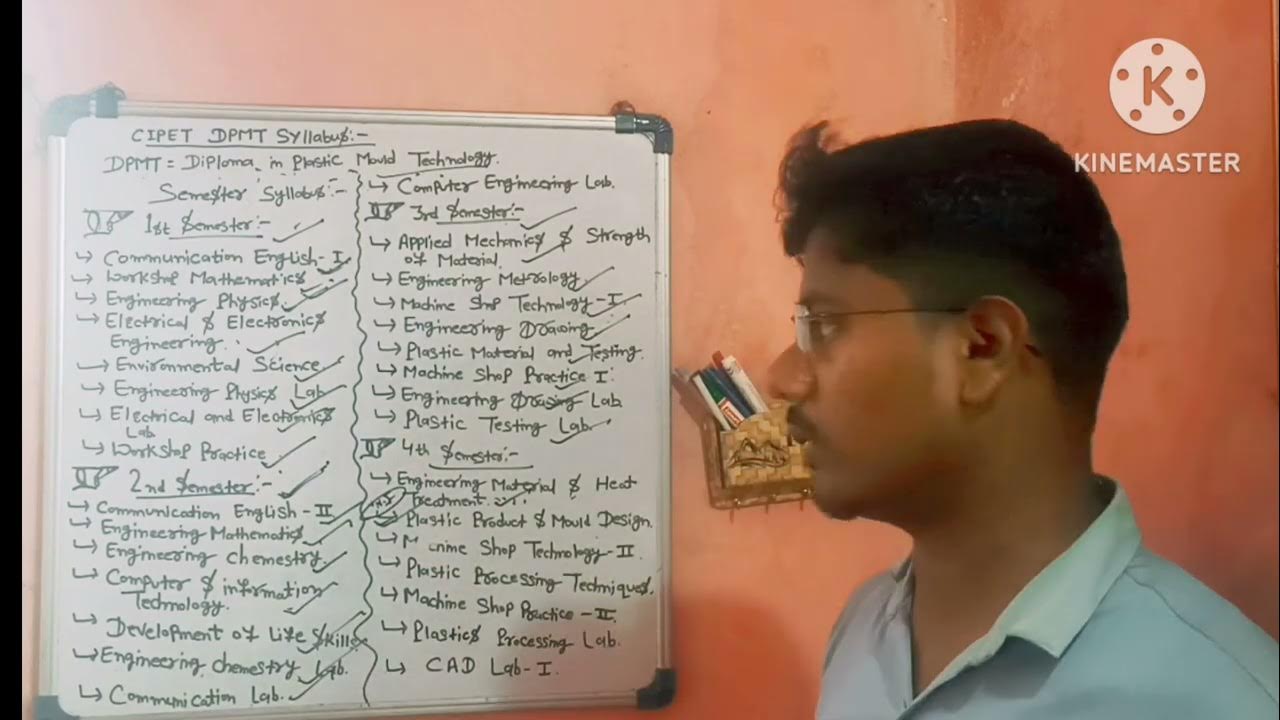 CIPET DPMT Syllabus:-
DPMT = Diploma in Plastic Mould Technology.
Semester Syllabus:-
1st Semester:-
Communication English-I
Workshop Mathematics
Engineering Physics
Electrical & Electronics
Engineering.
Environmental Science
Engineering Physics Lab
Electrical and Electronics
Lab
Workshop Practice
2nd Semester:-
Communication English-II
Engineering Mathematics
Engineering chemestry.
Computer & information
Technology.
Development of Life Skills
Engineering chemestry Lab.
Communication Lab.
Computer Engineering Lab.
3rd Semester:-
Applied Mechanics & Strength
of Material.
Engineering Metrology
Machine Shop Technology-I
Engineering Drawing
Plastic Material and Testing.
Machine Shop Practice I.
Engineering Drawing Lab.
Plastic Testing Lab.
4th Semester:-
Engineering Material & Heat
Treatment
Plastic Product & Mould Design.
Shop Technology-II.
Plastic Processing Techniques.
Machine Shop Practice-II.
Plastics Processing Lab.
CAD Lab-I.
K
KINEMASTER